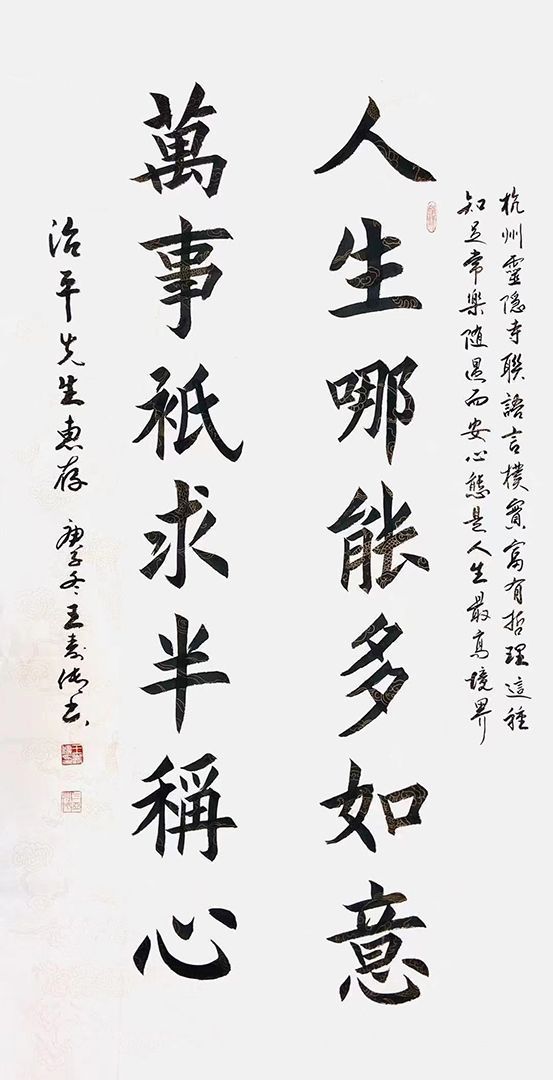 杭州靈隱寺聯語言樸實富有哲理這種
知足常樂随遇而安心態是人生最高境界
人生哪能多如意
萬事祇求半稱心
治平先生惠存
庚子冬王書